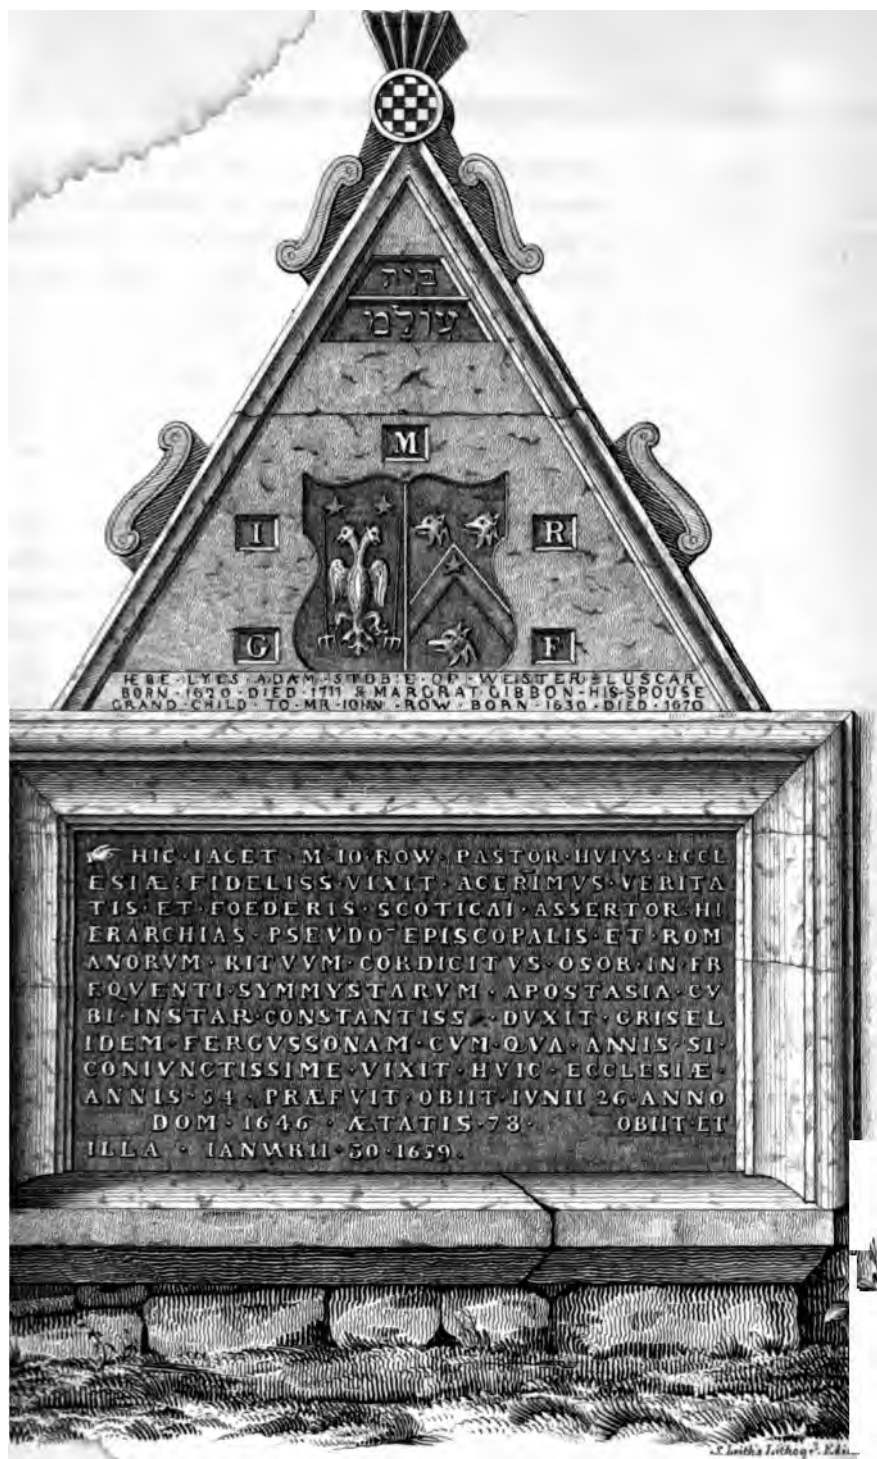 בית
עולם
M
I R
G F
HEBE · LYES · ADAM · STOBIE · OF · WESTER · LUSCAR
BORN · 1620 · DIED · 1711 & MARGRAT · GIBBON · HIS · SPOUSE
GRAND · CHILD · TO · MR · IOHN · ROW · BORN · 1630 · DIED · 1670
☞ HIC · IACET · M · IO · ROW · PASTOR · HVIVS · ECCL
ESIÆ · FIDELISS · VIXIT · ACERIMVS · VERITA
TIS · ET · FOEDERIS · SCOTICAI · ASSERTOR · HI
ERARCHIAS · PSEVDO-EPISCOPALIS · ET · ROM
ANORVM · RITVVM · CORDICITVS · OSOR · IN · FR
EQVENTI · SYMMYSTARVM · APOSTASIA · CV
BI · INSTAR · CONSTANTISS · DVXIT · GRISEL
IDEM · FERGVSSONAM · CVM · QVA · ANNIS · SI ·
CONIVNCTISSIME · VIXIT · HVIC · ECCLESIÆ ·
ANNIS · 54 · PRÆFVIT · OBIIT · IVNII 26 · ANNO
DOM · 1646 · ÆTATIS · 78 · OBIIT · ET
ILLA · IANVARII · 30 · 1659 .
S. Leith's Lithogr. Edin